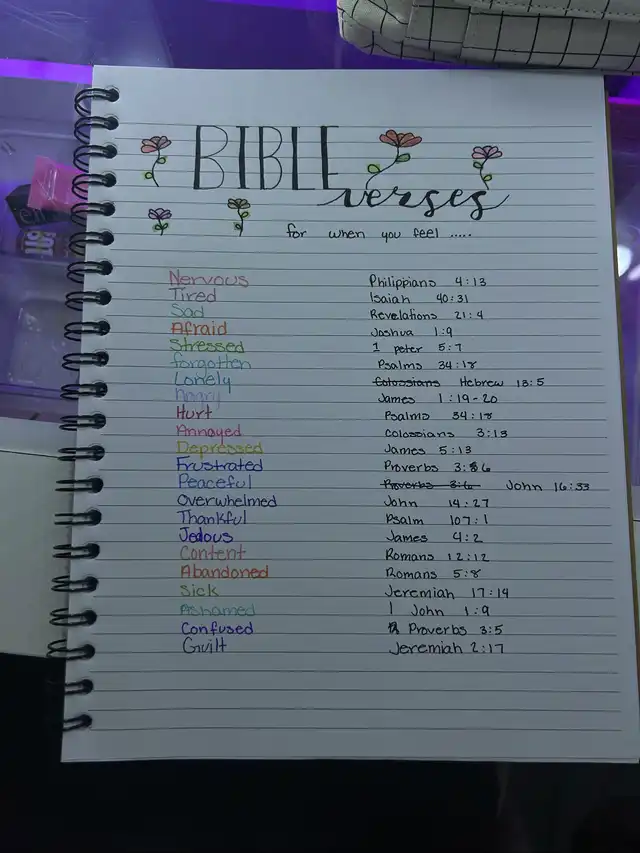 BIBLE
verses
for when you feel .....
Nervous Philippians 4:13
Tired Isaiah 40:31
Sad Revelations 21:4
Afraid Joshua 1:9
Stressed 1 peter 5:7
forgotten Psalms 34:18
Lonely Colossians Hebrew 13:5
Angry James 1:19-20
Hurt Psalms 34:18
Annoyed Colossians 3:13
Depressed James 5:13
Frustrated Proverbs 3:6
Peaceful Proverbs 3:6 John 16:33
Overwhelmed John 14:27
Thankful Psalm 107:1
Jealous James 4:2
Content Romans 12:12
Abandoned Romans 5:8
Sick Jeremiah 17:14
Ashamed 1 John 1:9
Confused Proverbs 3:5
Guilt Jeremiah 2:17